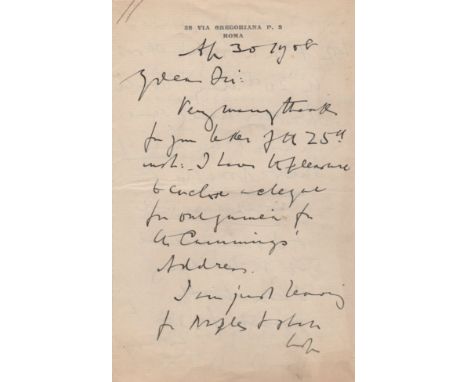 38 VIA GREGORIANA P. 3
ROMA
Ap 30 1908
My dear Sir:
Very many thanks
for your letter of the 25th
inst:. I have the pleasure
to enclose a cheque
for one guinea for
the Cummings'
Address.
I am just leaving
for Naples to